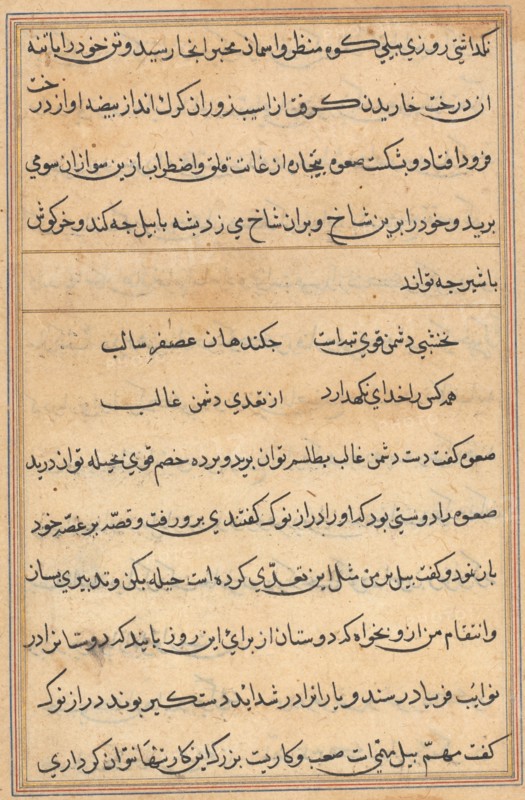 نکداشتی روزی پیلی کوه منظر و اسمان مخبر انجا رسید و تن خود را باتنه
ان درخت خاریدن کرفت از اسیب زور ان کرک انداز بیضه او از درخت
فرود افتاد و بشکست صعوه بیچاره از غایت قلق و اضطراب ازین سو ازان سو می
پرید و خود را برین شاخ و بران شاخ می زد پشه با پیل چه کند و خرکوش
باشیر چه تواند
نخشبی دشمن قوی تبه است چکند هان عصفر سالب
همه کس را خدای نکهدارد از تعدی دشمن غالب
صعوه کفت دست دشمن غالب بطلسم توان برید و پرده خصم قوی بحیله توان درید
صعوه را دوستی بود که او را دراز نوک کفتندی برو رفت و قصه پر غصه خود
باز نمود و کفت پیل بر من مثل این تعدی کرده است حیله بکن و تدبیری بسان
و انتقام من ازو بخواه که دوستان از برای این روز بایند که دوستانرا در
نوایب فریاد رسند و یارانرا در شداید دستکیر بوند دراز نوک
کفت مهم پیل مهمی است صعب و کاریست بزرک این کار تنها نتوان کرد اری